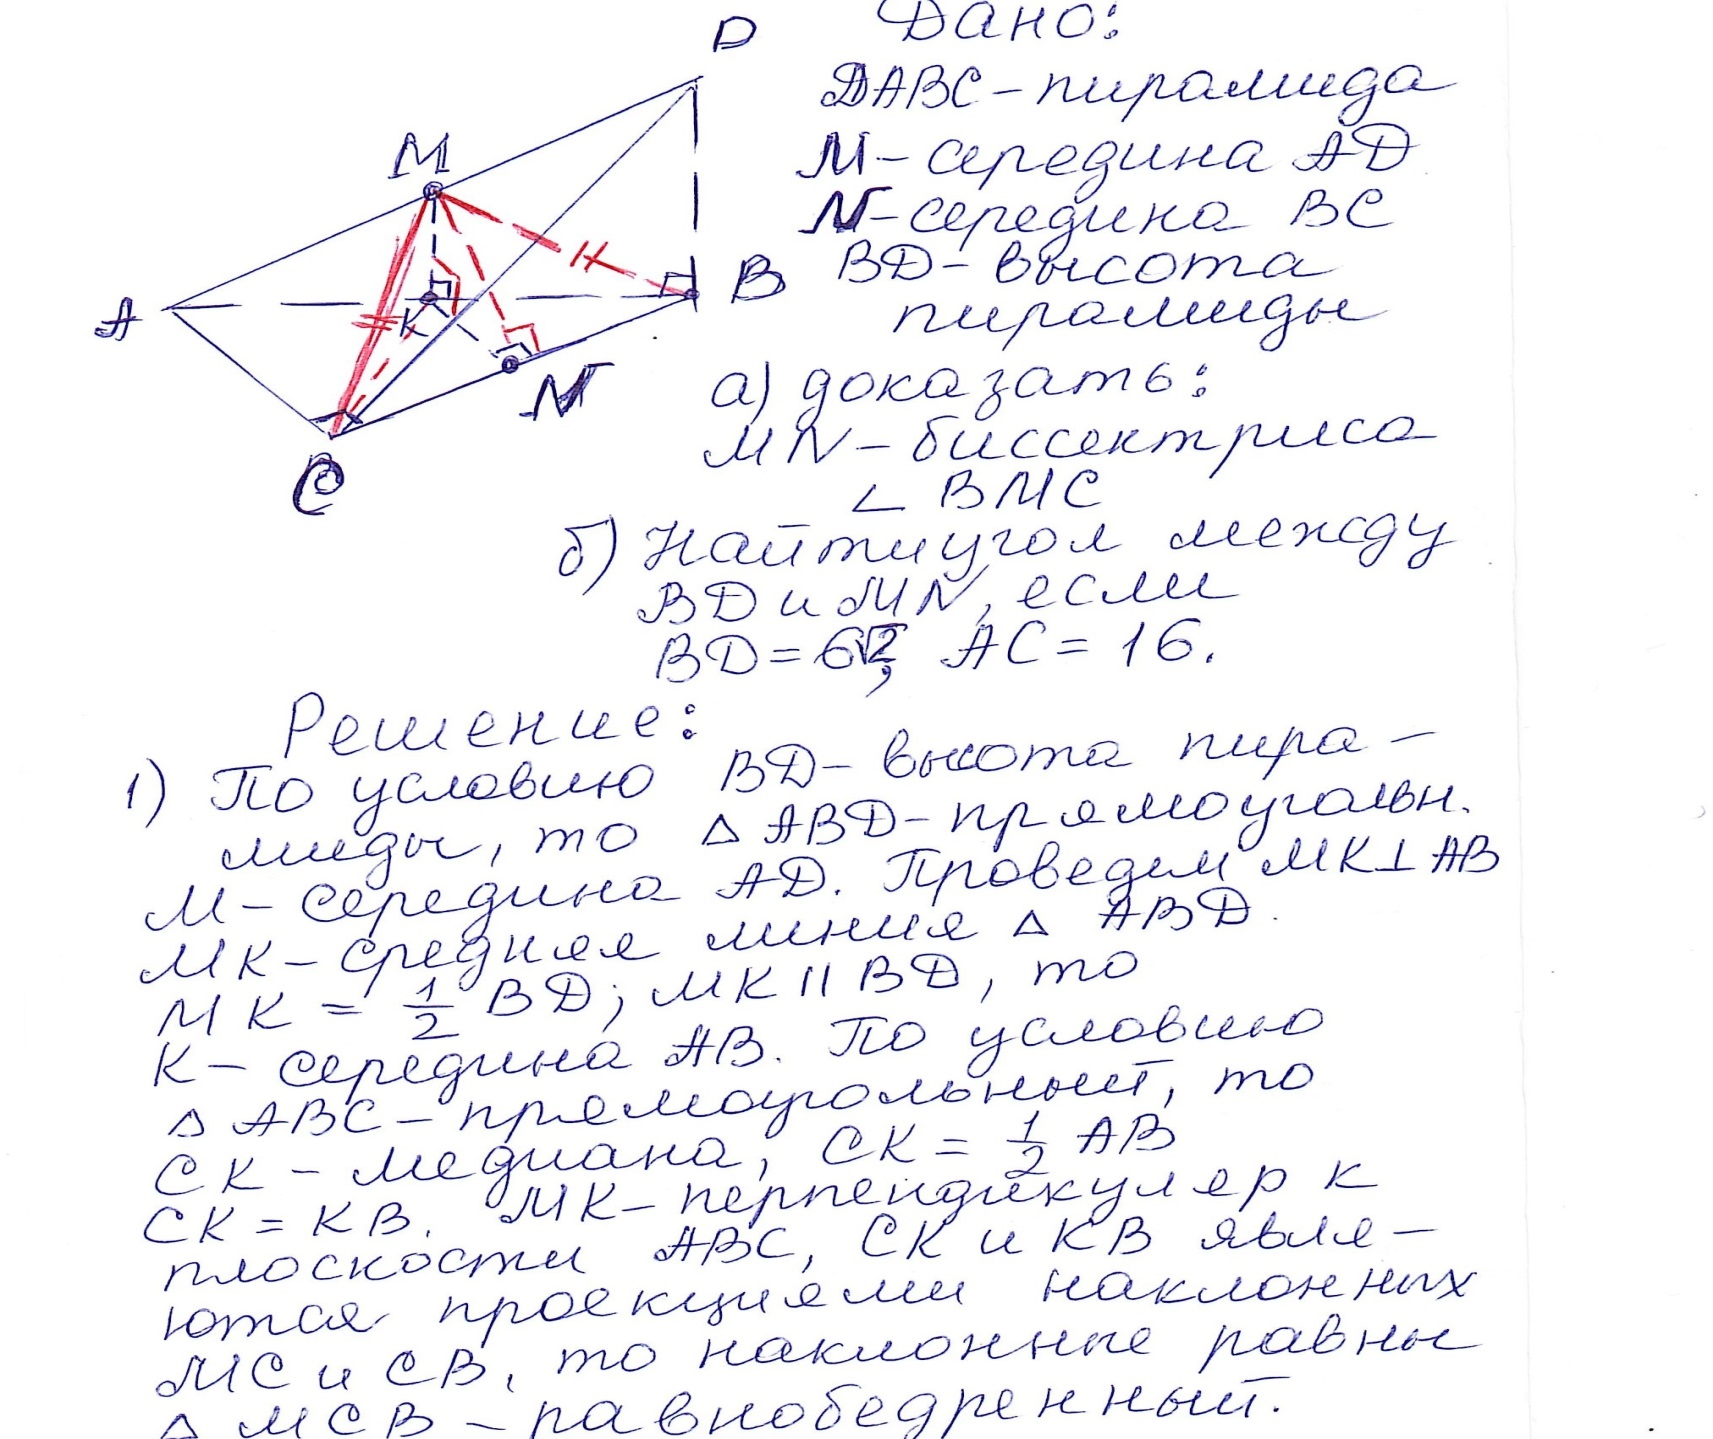 D
M
A
B
K
N
C
Дано:
DABC - пирамида
M - середина AD
N - середина BC
BD - высота
пирамиды
а) доказать:
MN - биссектриса
∠ BMC
б) Найти угол между
BD и MN, если
BD = 6√2, AC = 16.
Решение:
1) По условию BD - высота пира-
миды, то △ ABD - прямоугольн.
M - середина AD. Проведем MK⊥AB
MK - средняя линия △ ABD.
MK = 1/2 BD; MK || BD, то
K - середина AB. По условию
△ ABC - прямоугольный, то
CK - медиана, CK = 1/2 AB
CK = KB. MK - перпендикуляр к
плоскости ABC, CK и KB явля-
ются проекциями наклонных
MC и CB, то наклонные равны
△ MCB - равнобедренный.